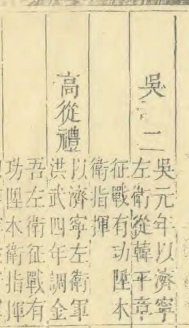 吳二
吳元年以濟寧
左衛從韓平章
征戰有功陞本
衛指揮
高從禮
以濟寧左衛軍
洪武四年調金
吾左衛征戰有
功陞本衛指揮